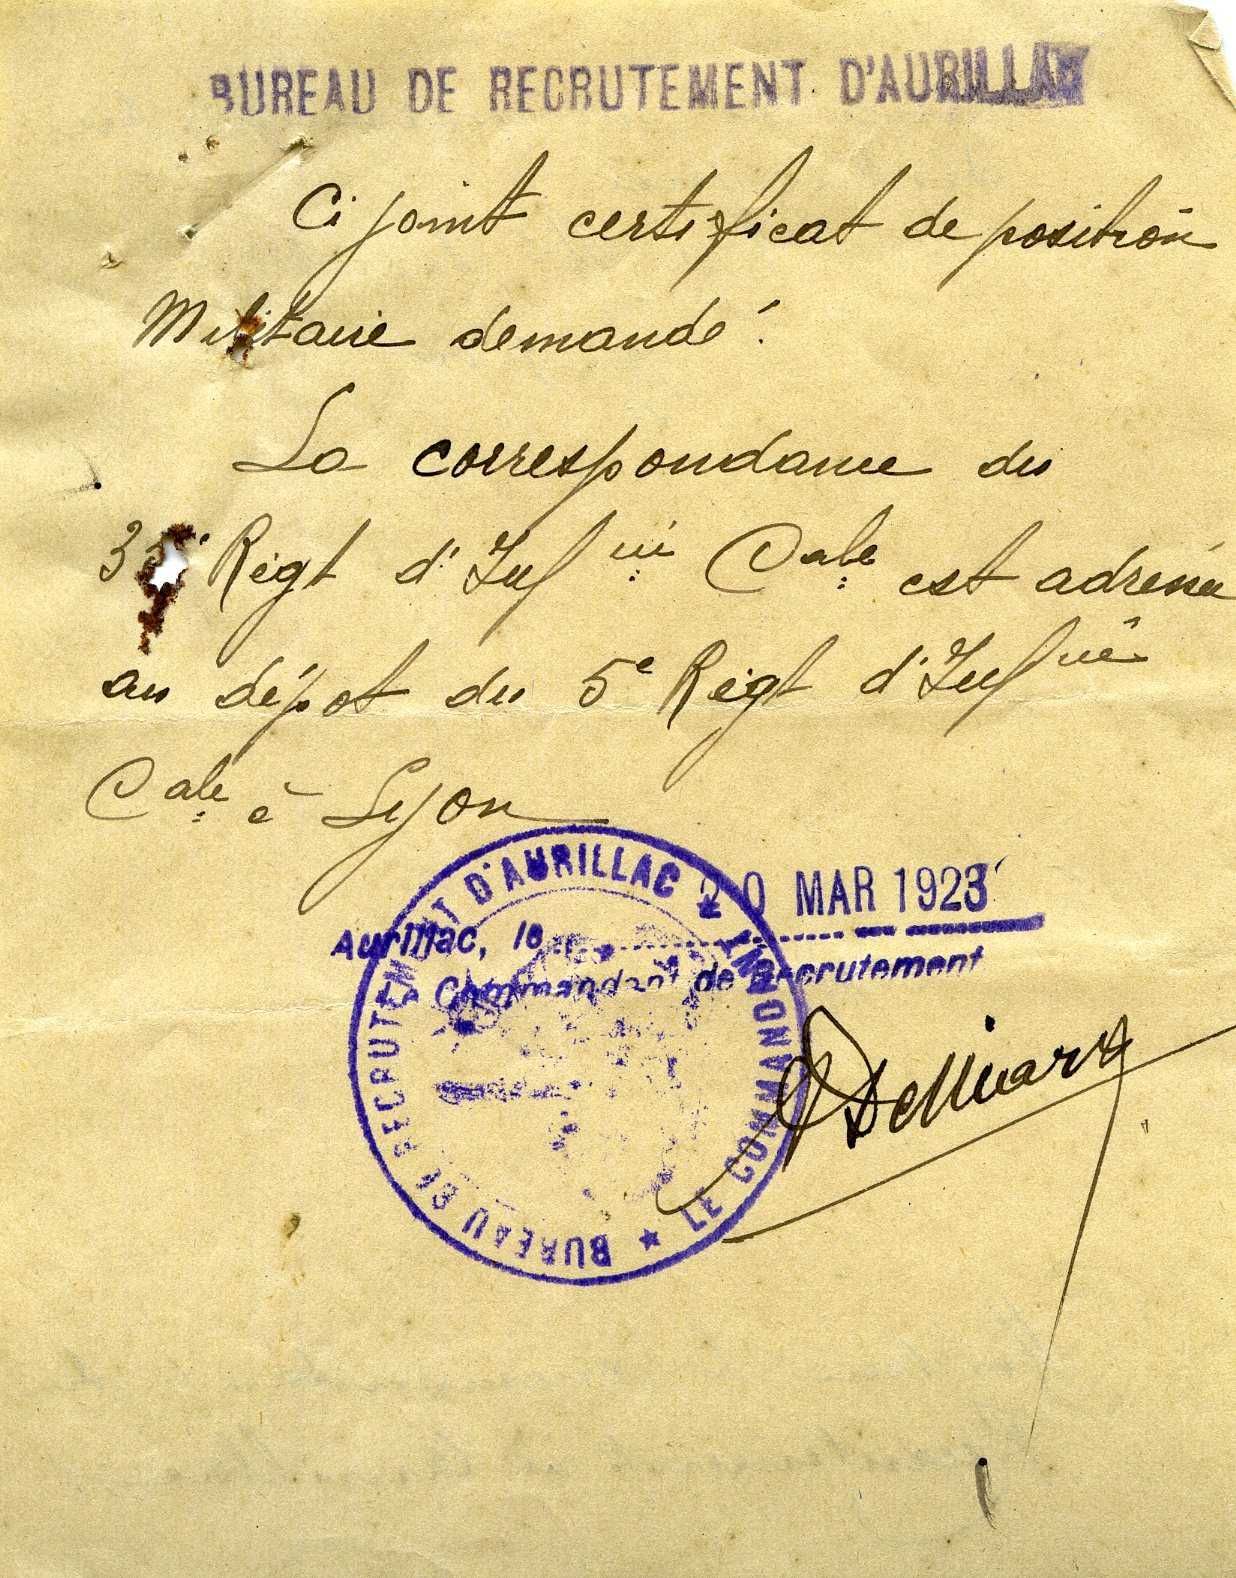 BUREAU DE RECRUTEMENT D'AURILLAC
Ci joint certificat de position
Militaire demandé.
La correspondance du
Régt d'Infrie Cale est adressée
au dépôt du 5e Régt d'Infrie
Cale à Lyon
20 MAR 1923
Aurillac, le
Le Commandant de Recrutement
BUREAU DE RECRUTEMENT D'AURILLAC ★ LE COMMANDANT ★